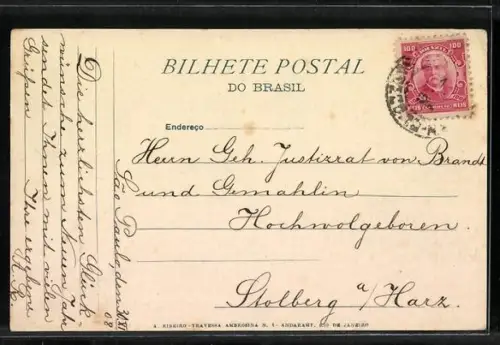 BILHETE POSTAL
DO BRASIL
Endereço
100 100
REIS
Herrn Geh. Justizrat von Brandt
und Gemahlin
Hochwolgeboren.
Stolberg a/Harz.
São Paulo, den 30/XI
08
Die herrlichsten Glück-
wünsche zum neuen Jahr
sendet Ihnen mit vielen
Grüßen
Ihr ergebener
A. RIBEIRO - TRAVESSA AMBROSINA N. 1 - ANDARAHY, RIO DE JANEIRO